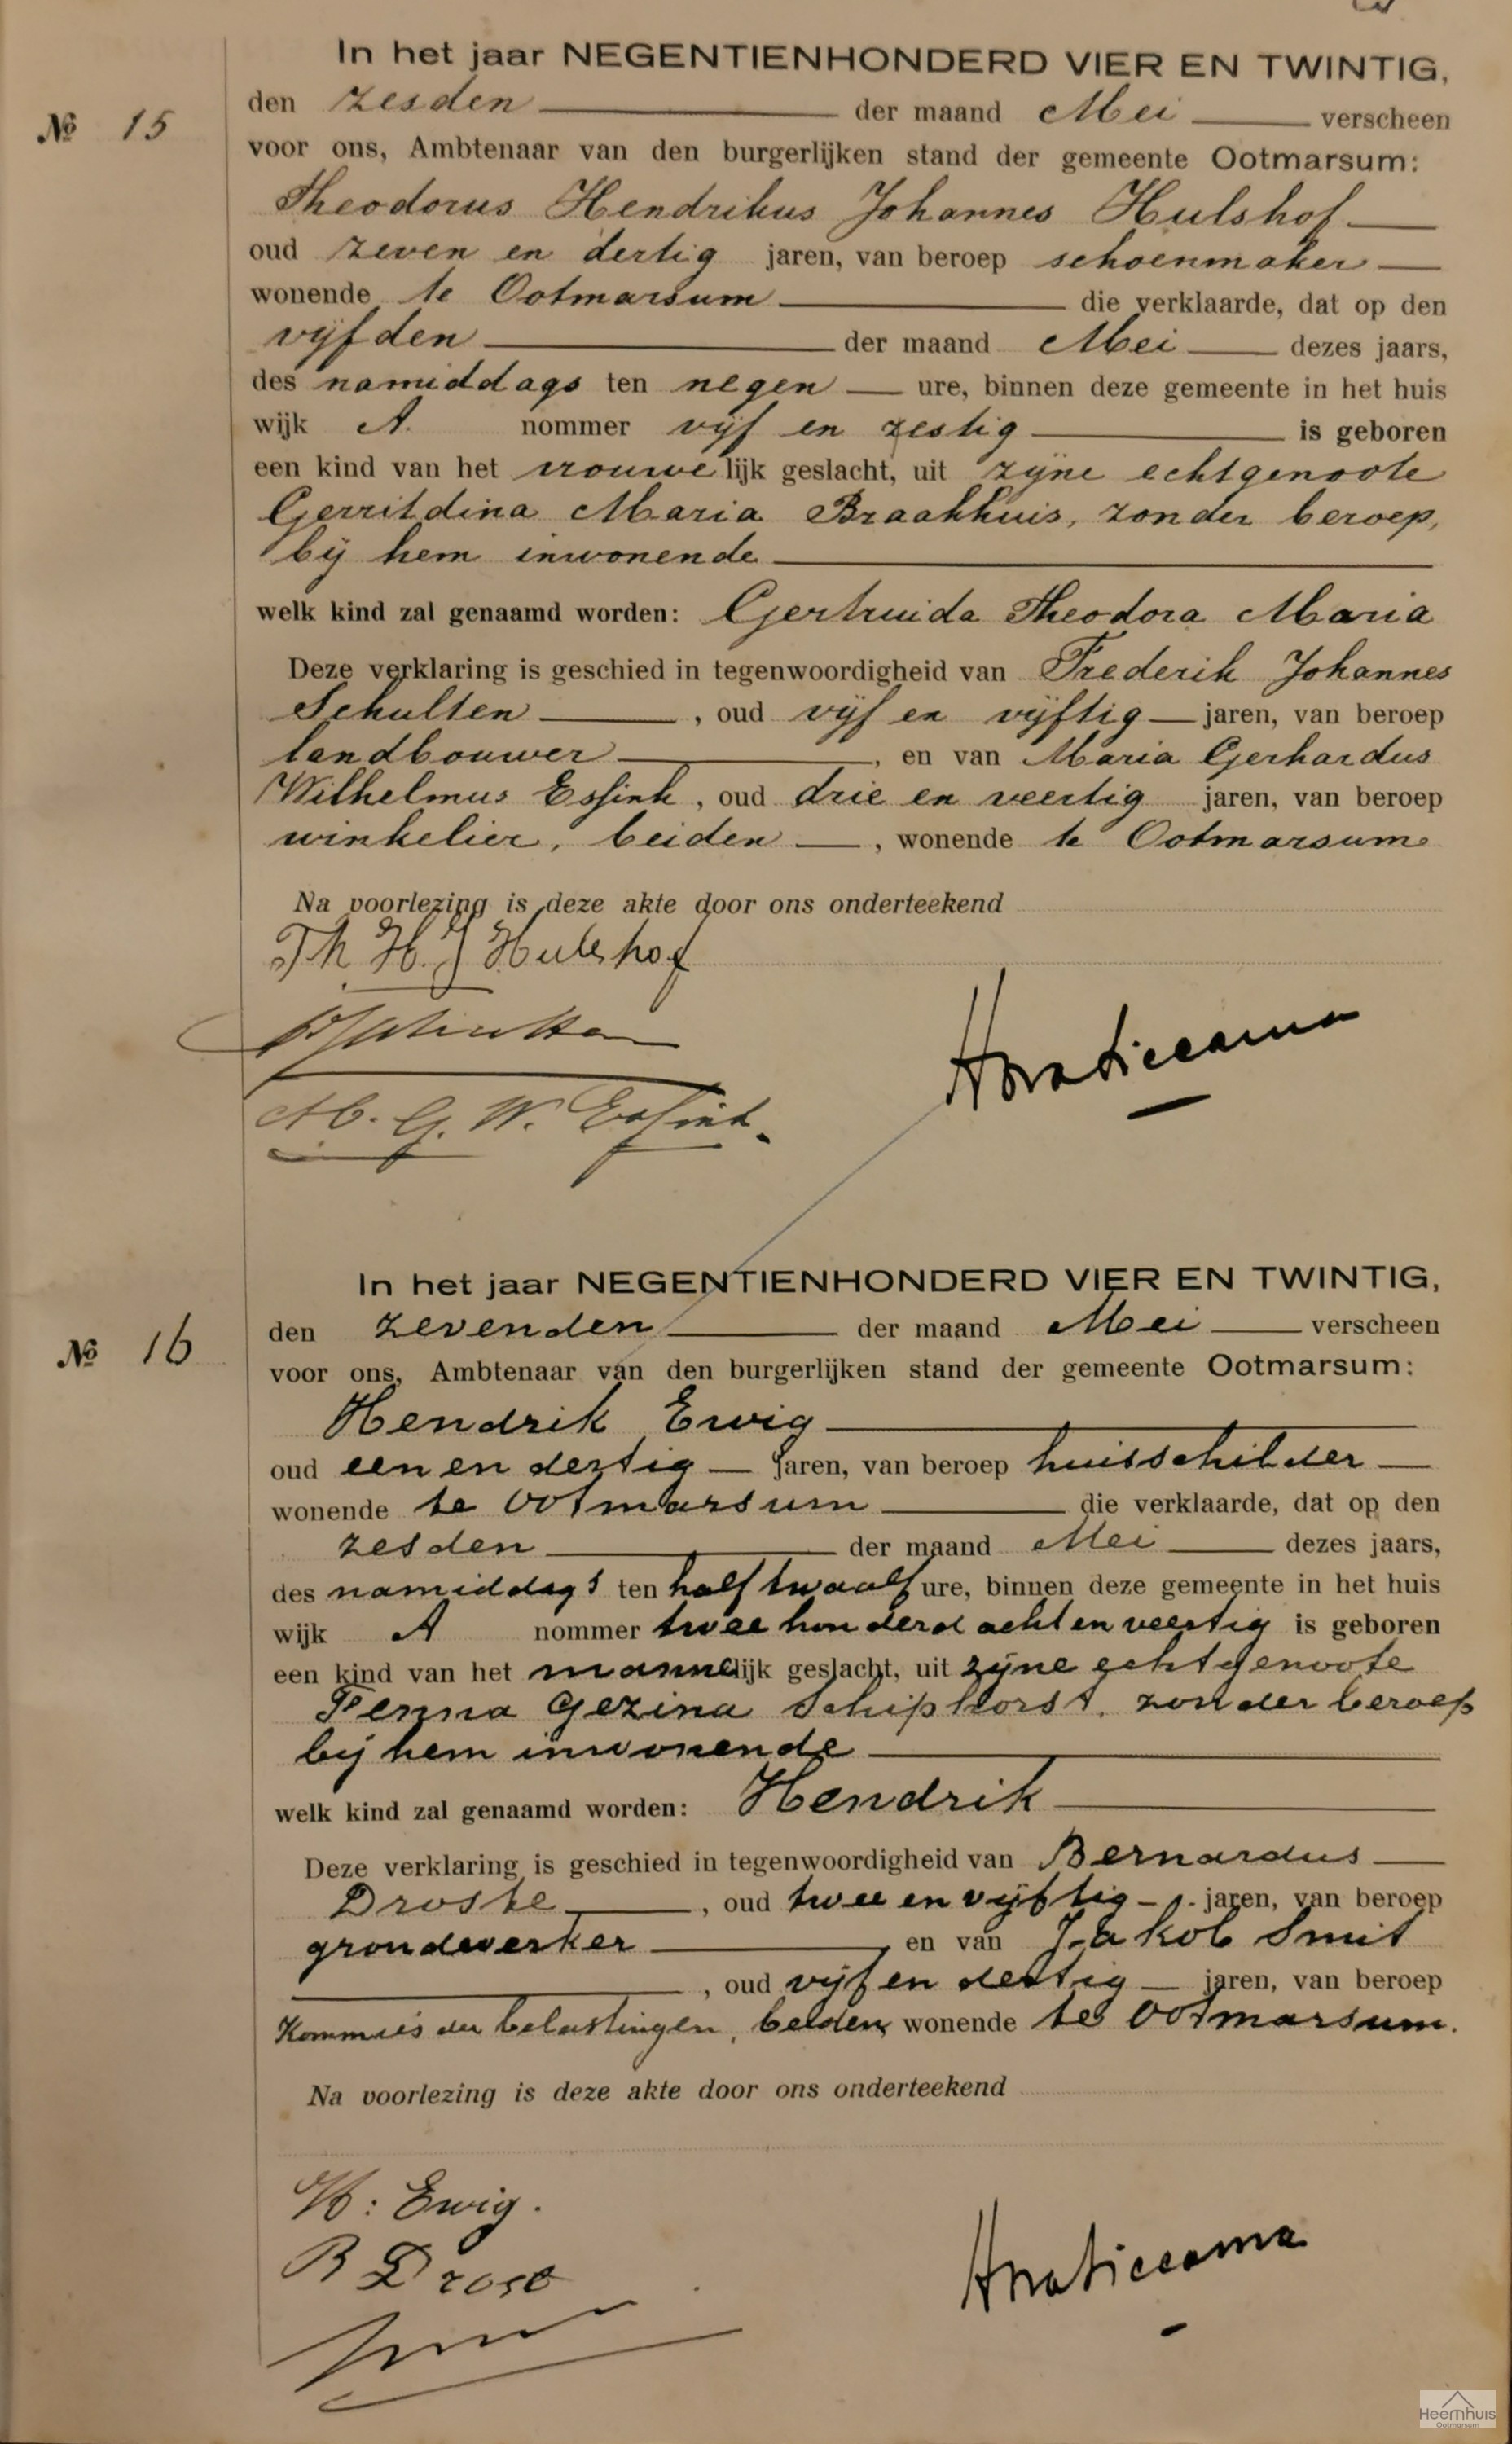 In het jaar NEGENTIENHONDERD VIER EN TWINTIG,
№ 15
den zesden der maand Mei verscheen
voor ons, Ambtenaar van den burgerlijken stand der gemeente Ootmarsum:
Theodorus Hendrikus Johannes Hulshof
oud zeven en dertig jaren, van beroep schoenmaker
wonende te Ootmarsum die verklaarde, dat op den
vijfden der maand Mei dezes jaars,
des namiddags ten negen ure, binnen deze gemeente in het huis
wijk A. nommer vijf en zestig is geboren
een kind van het vrouwelijk geslacht, uit zijne echtgenoote
Gerritdina Maria Braakhuis, zonder beroep,
bij hem inwonende
welk kind zal genaamd worden: Gertruida Theodora Maria
Deze verklaring is geschied in tegenwoordigheid van Frederik Johannes
Schulten, oud vijf en vijftig jaren, van beroep
landbouwer, en van Maria Gerhardus
Wilhelmus Essink, oud drie en veertig jaren, van beroep
winkelier, beiden, wonende te Ootmarsum
Na voorlezing is deze akte door ons onderteekend
Th H. J Hulshof
M. G. W. Essink.
In het jaar NEGENTIENHONDERD VIER EN TWINTIG,
№ 16
den zevenden der maand Mei verscheen
voor ons, Ambtenaar van den burgerlijken stand der gemeente Ootmarsum:
Hendrik Ewig
oud een en dertig jaren, van beroep huisschilder
wonende te Ootmarsum die verklaarde, dat op den
zesden der maand Mei dezes jaars,
des namiddags ten half twaalf ure, binnen deze gemeente in het huis
wijk A nommer twee honderd acht en veertig is geboren
een kind van het mannelijk geslacht, uit zijne echtgenoote
Fenna Gezina Schiphorst, zonder beroep
bij hem inwonende
welk kind zal genaamd worden: Hendrik
Deze verklaring is geschied in tegenwoordigheid van Bernardus
Droste, oud twee en vijftig jaren, van beroep
grondwerker en van Jakob Smit
, oud vijf en dertig jaren, van beroep
Kommies der belastingen, beiden, wonende te Ootmarsum.
Na voorlezing is deze akte door ons onderteekend
H: Ewig.
B Droste
Heemhuis
Ootmarsum